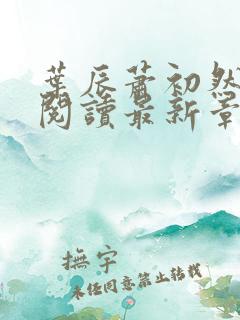 葉辰蕭初然
閱讀最新章
撫宇
未經同意禁止轉載